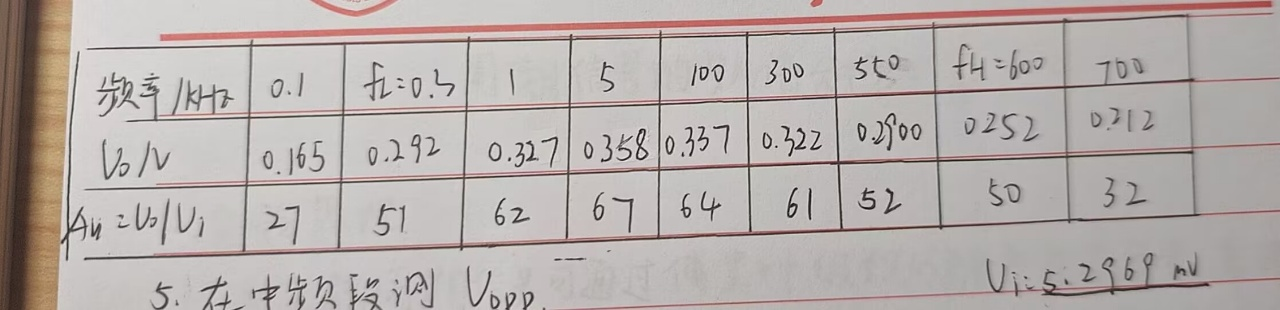 频率/kHz 0.1 fL=0.3 1 5 100 300 550 fH=600 700
Vo/V 0.165 0.292 0.327 0358 0.337 0.322 0.2900 0252 0.212
Au=Vo/Vi 27 51 62 67 64 61 52 50 32
5. 在中频段测 Vopp.
Vi=5.2969 mV